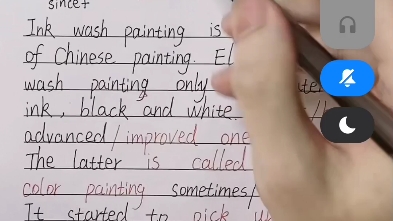 since+
Ink wash painting is
of Chinese painting. El
wash painting only
ink, black and white.
advanced/improved one
The latter is called
color painting sometimes/
It started to pick u